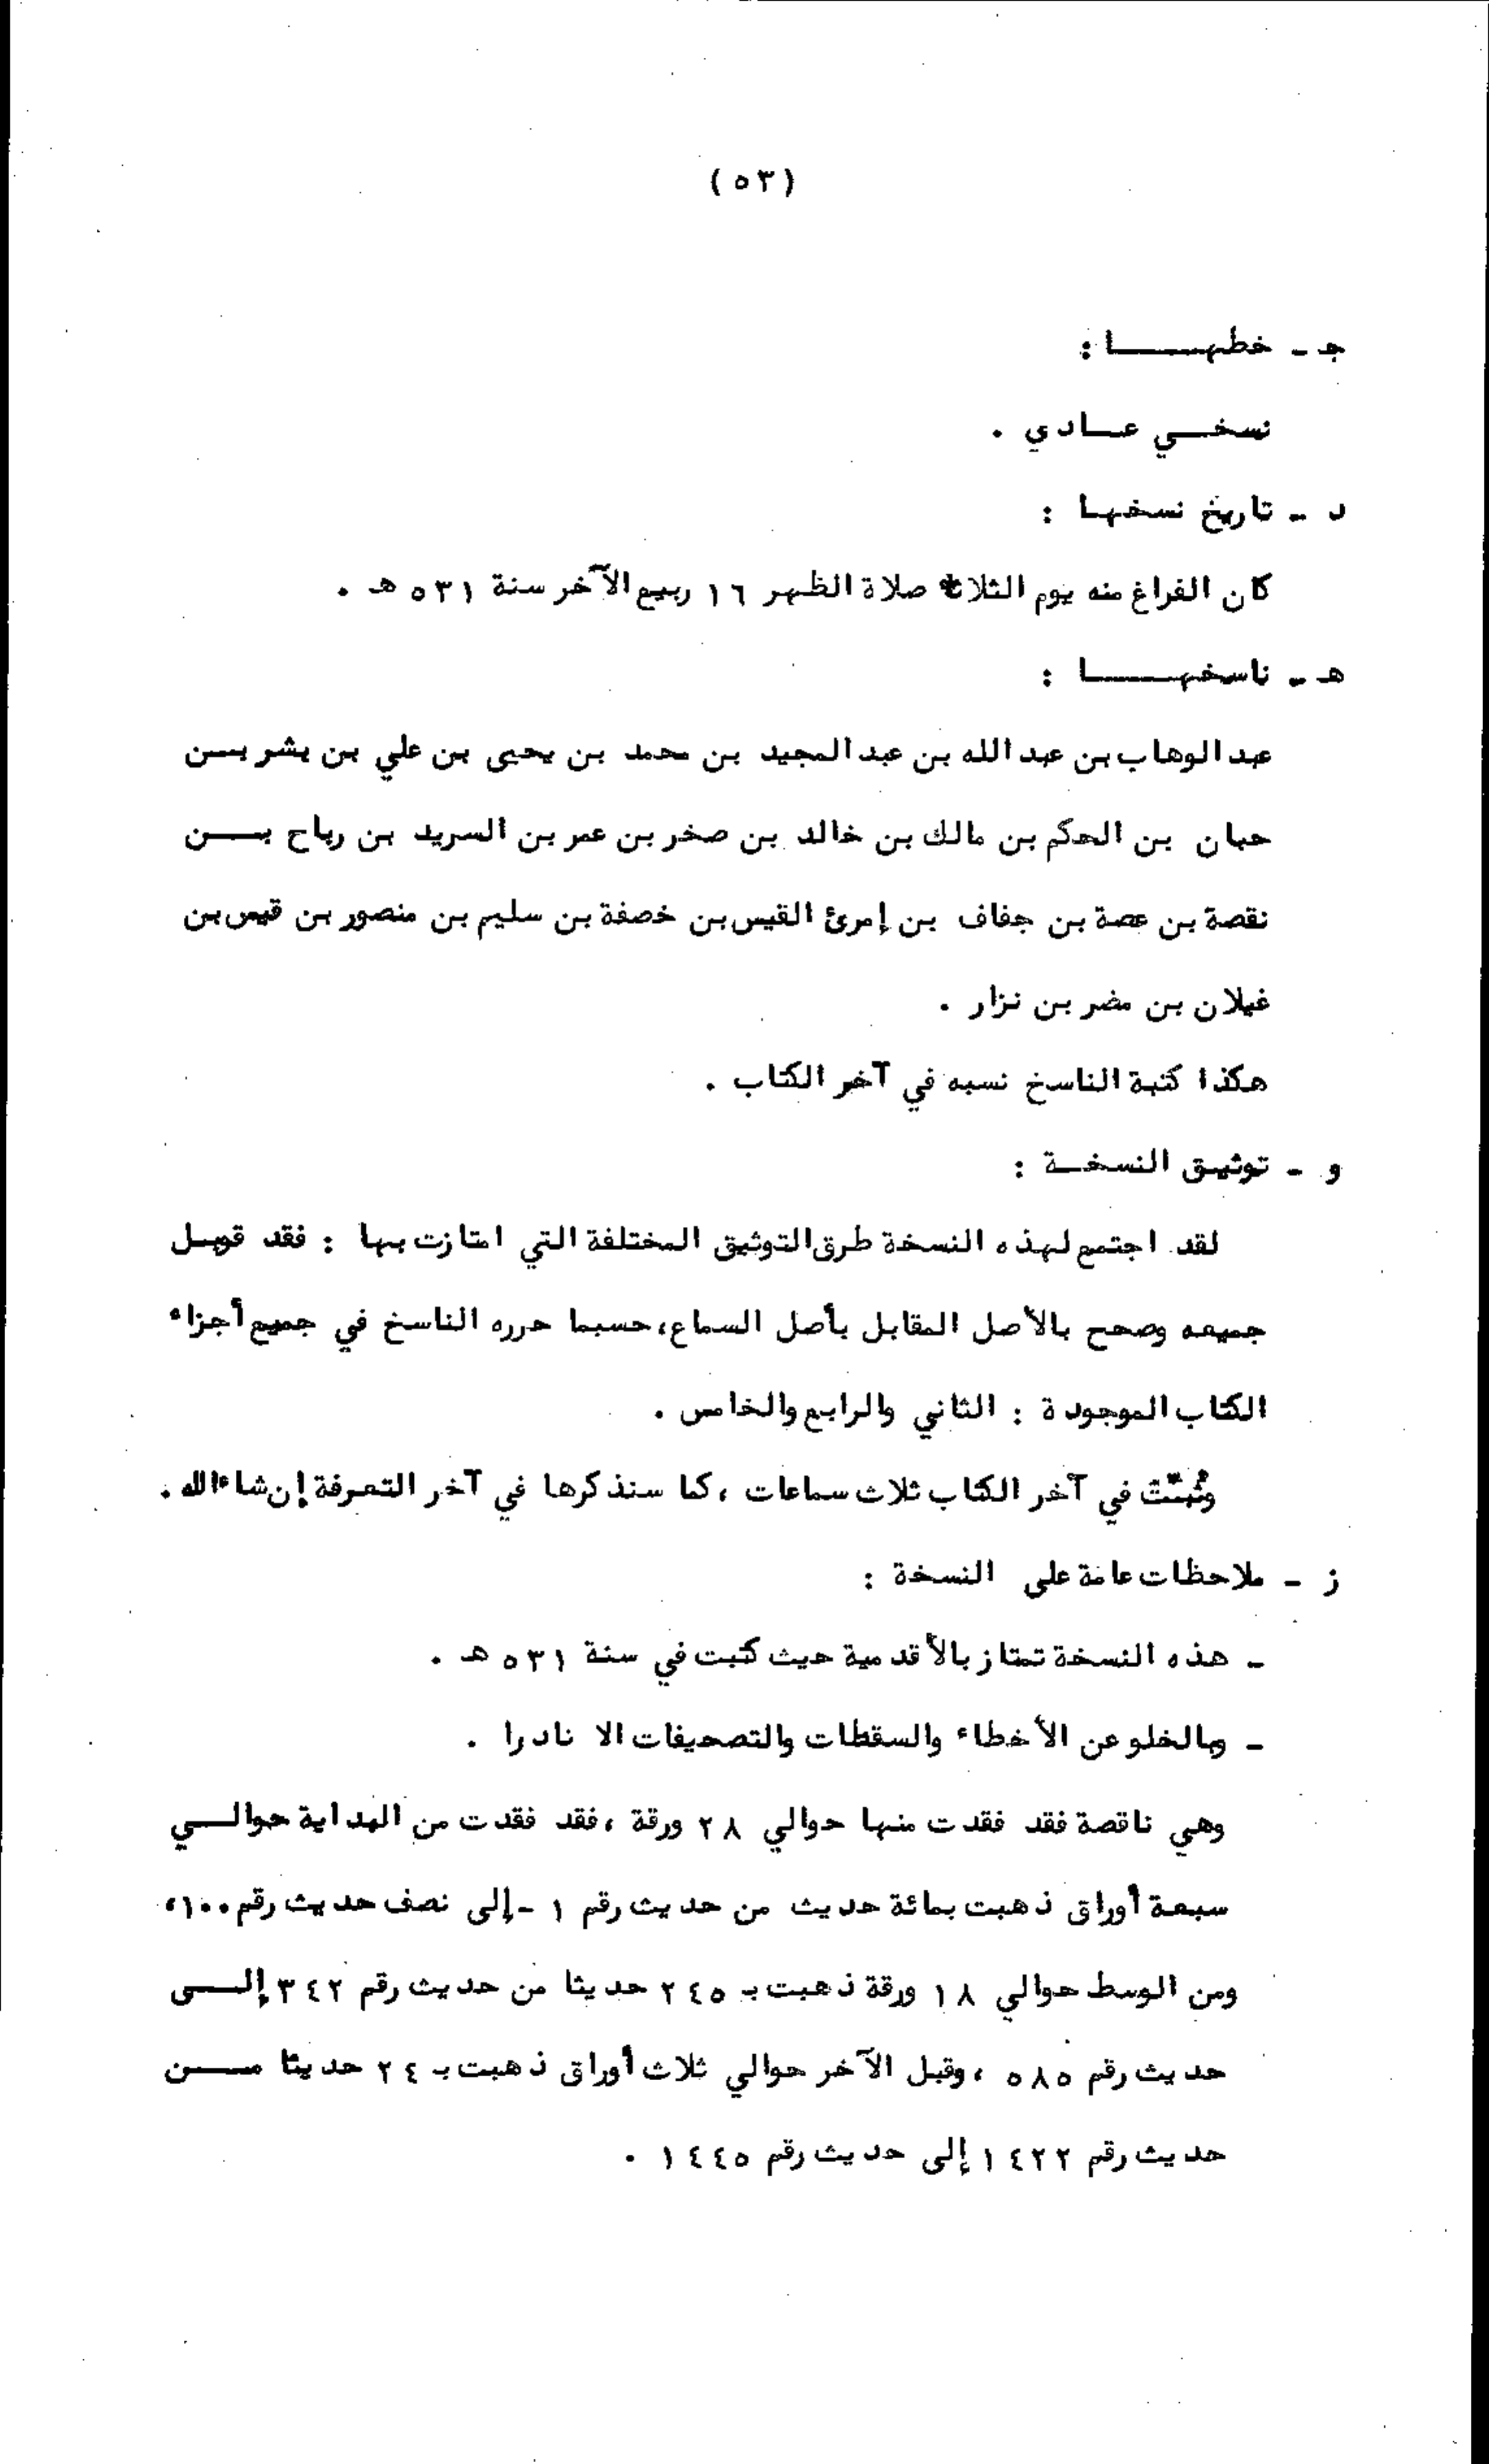 (٥٣)
جـ ـ خطهـــا :
نسخــي عــادي .
د ـ تاريخ نسخهـا :
كان الفراغ منه يوم صلاة الظهر ١٦ ربيع الآخر سنة ٥٣١ هـ .
هـ ـ ناسخهـــا :
عبد الوهاب بن عبد الله بن عبد المجيد بن محمد بن يحيى بن علي بن بشر بــن
حبان بن الحكم بن مالك بن خالد بن صخر بن عمر بن السريد بن رباح بــن
نقصة بن عصة بن جفاف بن إمرئ القيس بن خصفة بن سليم بن منصور بن قيس بن
غيلان بن مضر بن نزار .
هكذا كتبة الناسخ نسبه في آخر الكتاب .
و ـ توثيـق النسخـة :
لقد اجتمع لهذه النسخة طرق التوثيق المختلفة التي امتازت بها : فقد قوبـل
جميعه وصحح بالأصل المقابل بأصل السماع، حسبما حرره الناسخ في جميع أجزاء
الكتاب الموجودة : الثاني والرابع والخامس .
في آخر الكتاب ثلاث سماعات ، كما سنذكرها في آخر التعرفة إن شاء الله .
ز ـ ملاحظات عامة على النسخة :
ـ هذه النسخة تمتاز بالأقدمية حيث كتبت في سنة ٥٣١ هـ .
ـ وبالخلو عن الأخطاء والسقطات والتصحيفات الا نادرا .
وهي ناقصة فقد فقدت منها حوالي ٢٨ ورقة ، فقد فقدت من البداية حوالــي
سبعة أوراق ذهبت بمائة حديث من حديث رقم ١ ـ إلى نصف حديث رقم ١٠٠،
ومن الوسط حوالي ١٨ ورقة ذهبت بـ ٢٤٥ حديثا من حديث رقم ٣٤٢ إلــى
حديث رقم ٥٨٥ ، وقبل الآخر حوالي ثلاث أوراق ذهبت بـ ٢٤ حديثا مــن
حديث رقم ١٤٢٢ إلى حديث رقم ١٤٤٥ .